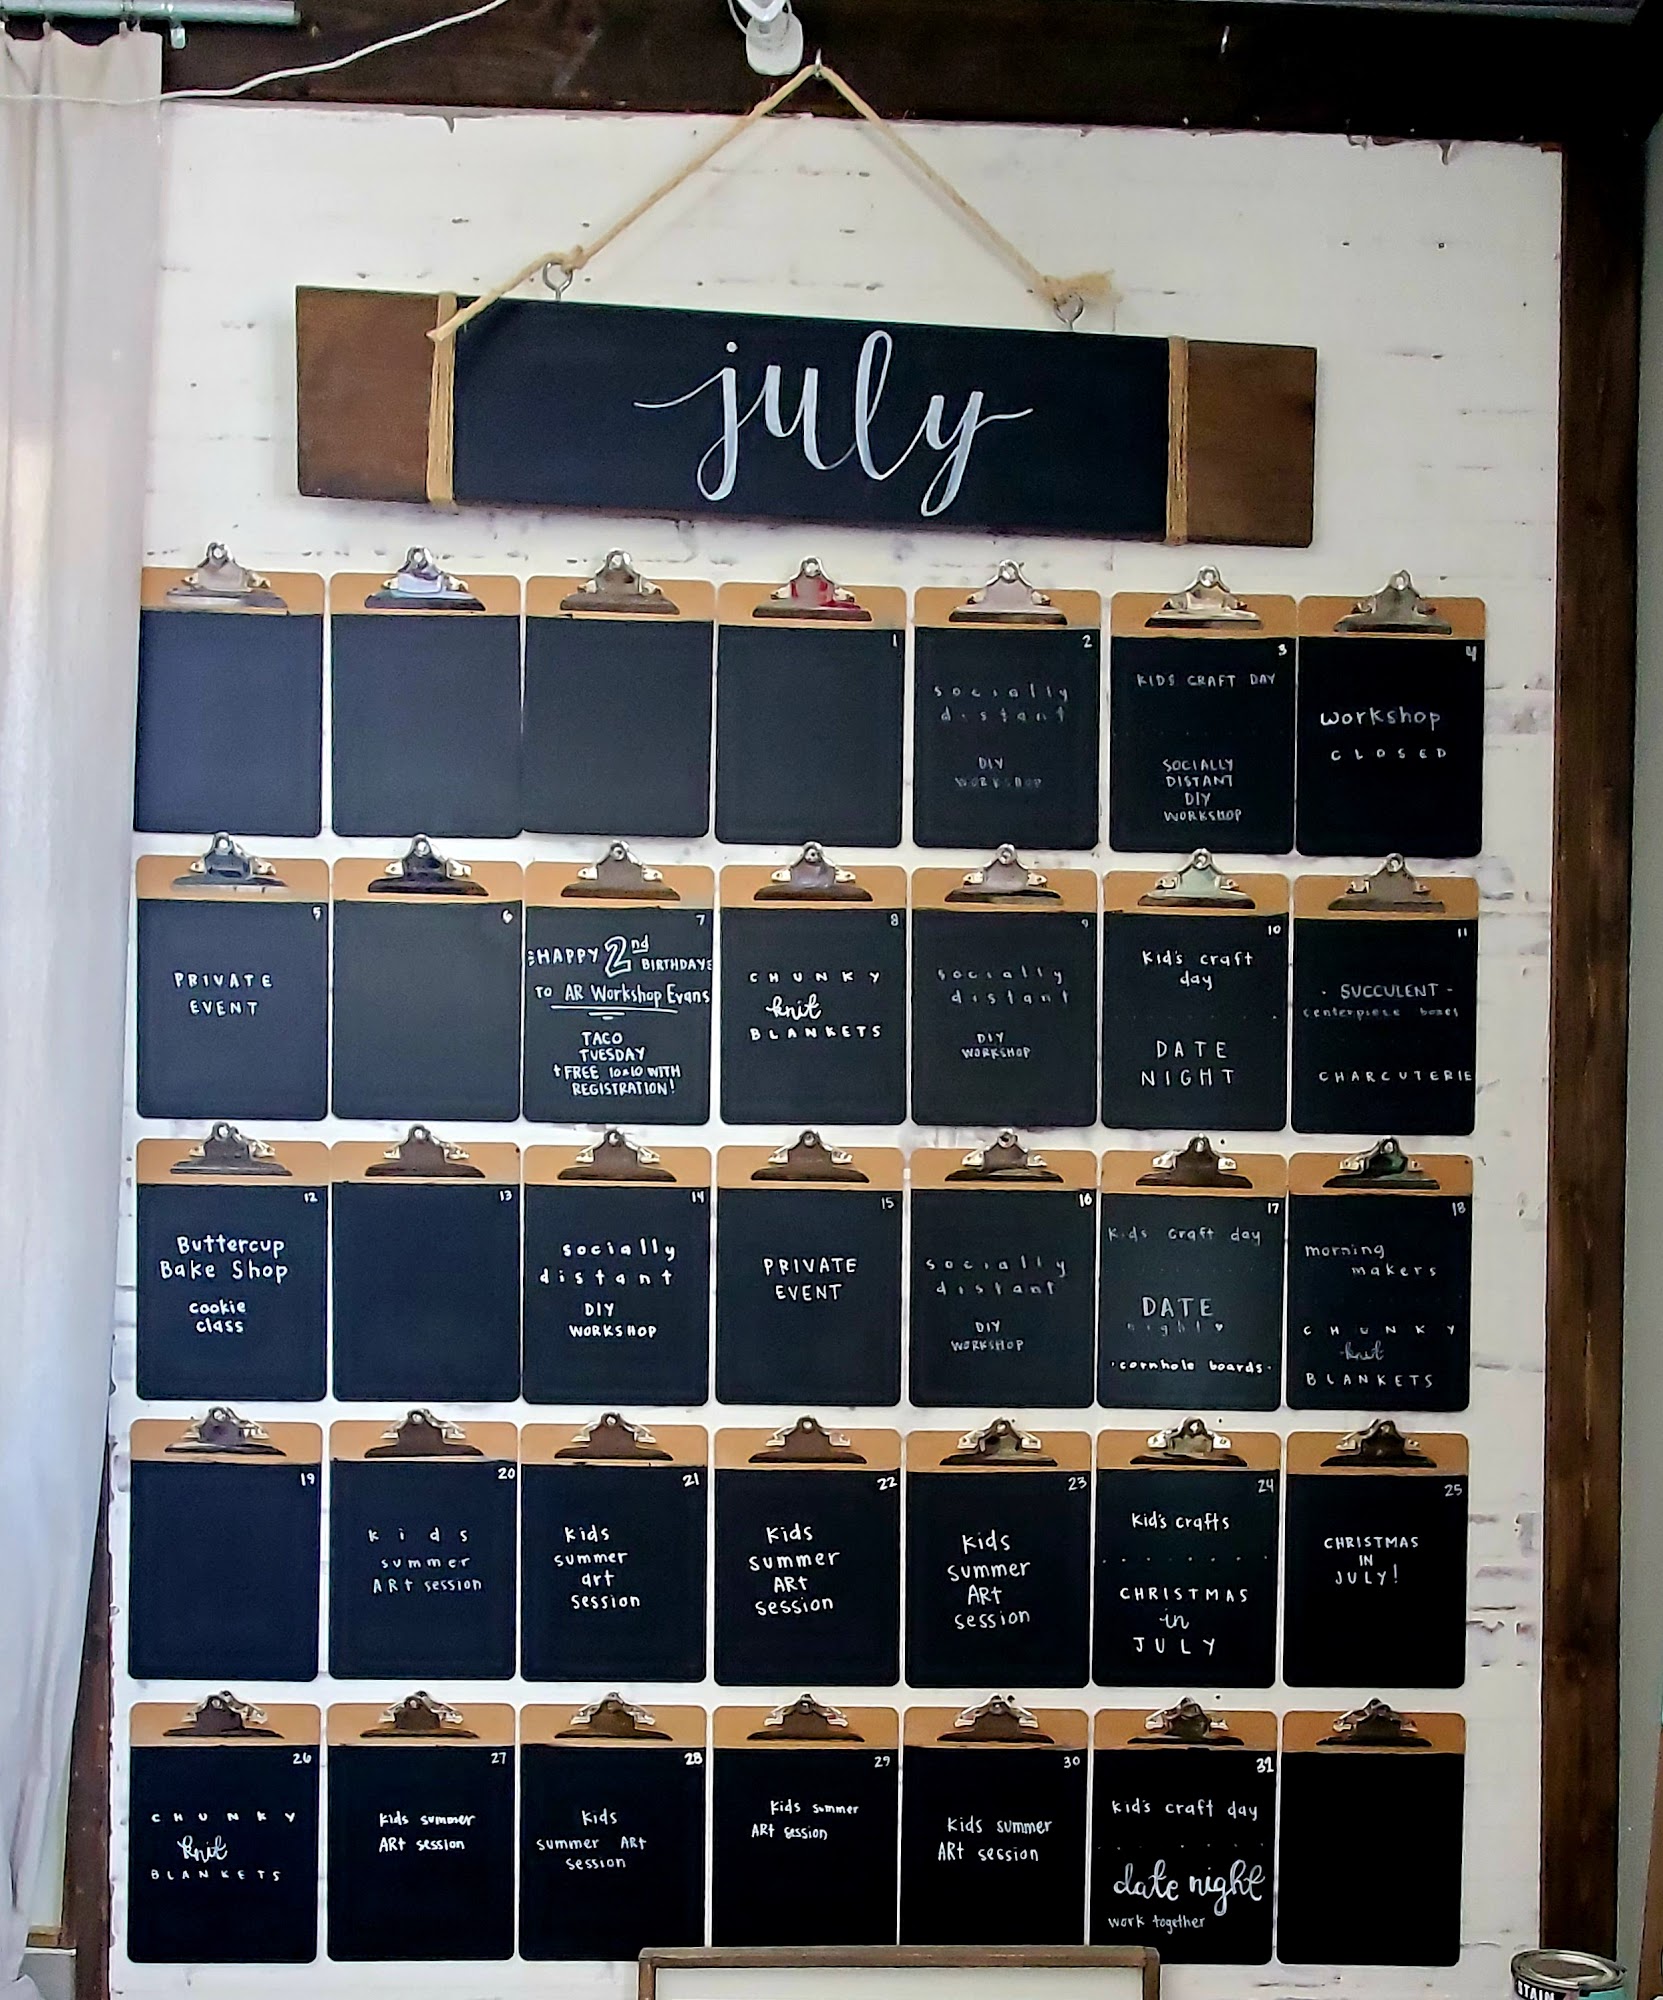 july
1
2
socially
distant
DIY
WORKSHOP
3
KIDS CRAFT DAY
SOCIALLY
DISTANT
DIY
WORKSHOP
4
workshop
CLOSED
5
PRIVATE
EVENT
6
7
HAPPY 2nd BIRTHDAY
TO AR Workshop Evans
TACO
TUESDAY
+ FREE 10x10 WITH
REGISTRATION!
8
CHUNKY
knit
BLANKETS
9
socially
distant
DIY
WORKSHOP
10
Kid's craft
day
DATE
NIGHT
11
- SUCCULENT -
centerpiece boxes
CHARCUTERIE
12
Buttercup
Bake Shop
cookie
class
13
14
socially
distant
DIY
WORKSHOP
15
PRIVATE
EVENT
16
socially
distant
DIY
WORKSHOP
17
Kids craft day
DATE
night ♥
·cornhole boards·
18
morning
makers
CHUNKY
knit
BLANKETS
19
20
kids
summer
ARt session
21
Kids
summer
art
session
22
Kids
summer
ARt
session
23
Kids
summer
ARt
session
24
Kid's crafts
CHRISTMAS
in
JULY
25
CHRISTMAS
IN
JULY!
26
CHUNKY
knit
BLANKETS
27
Kids summer
ARt session
28
Kids
summer ARt
session
29
Kids summer
ARt session
30
Kids summer
ARt session
31
Kid's craft day
date night
work together
STAIN